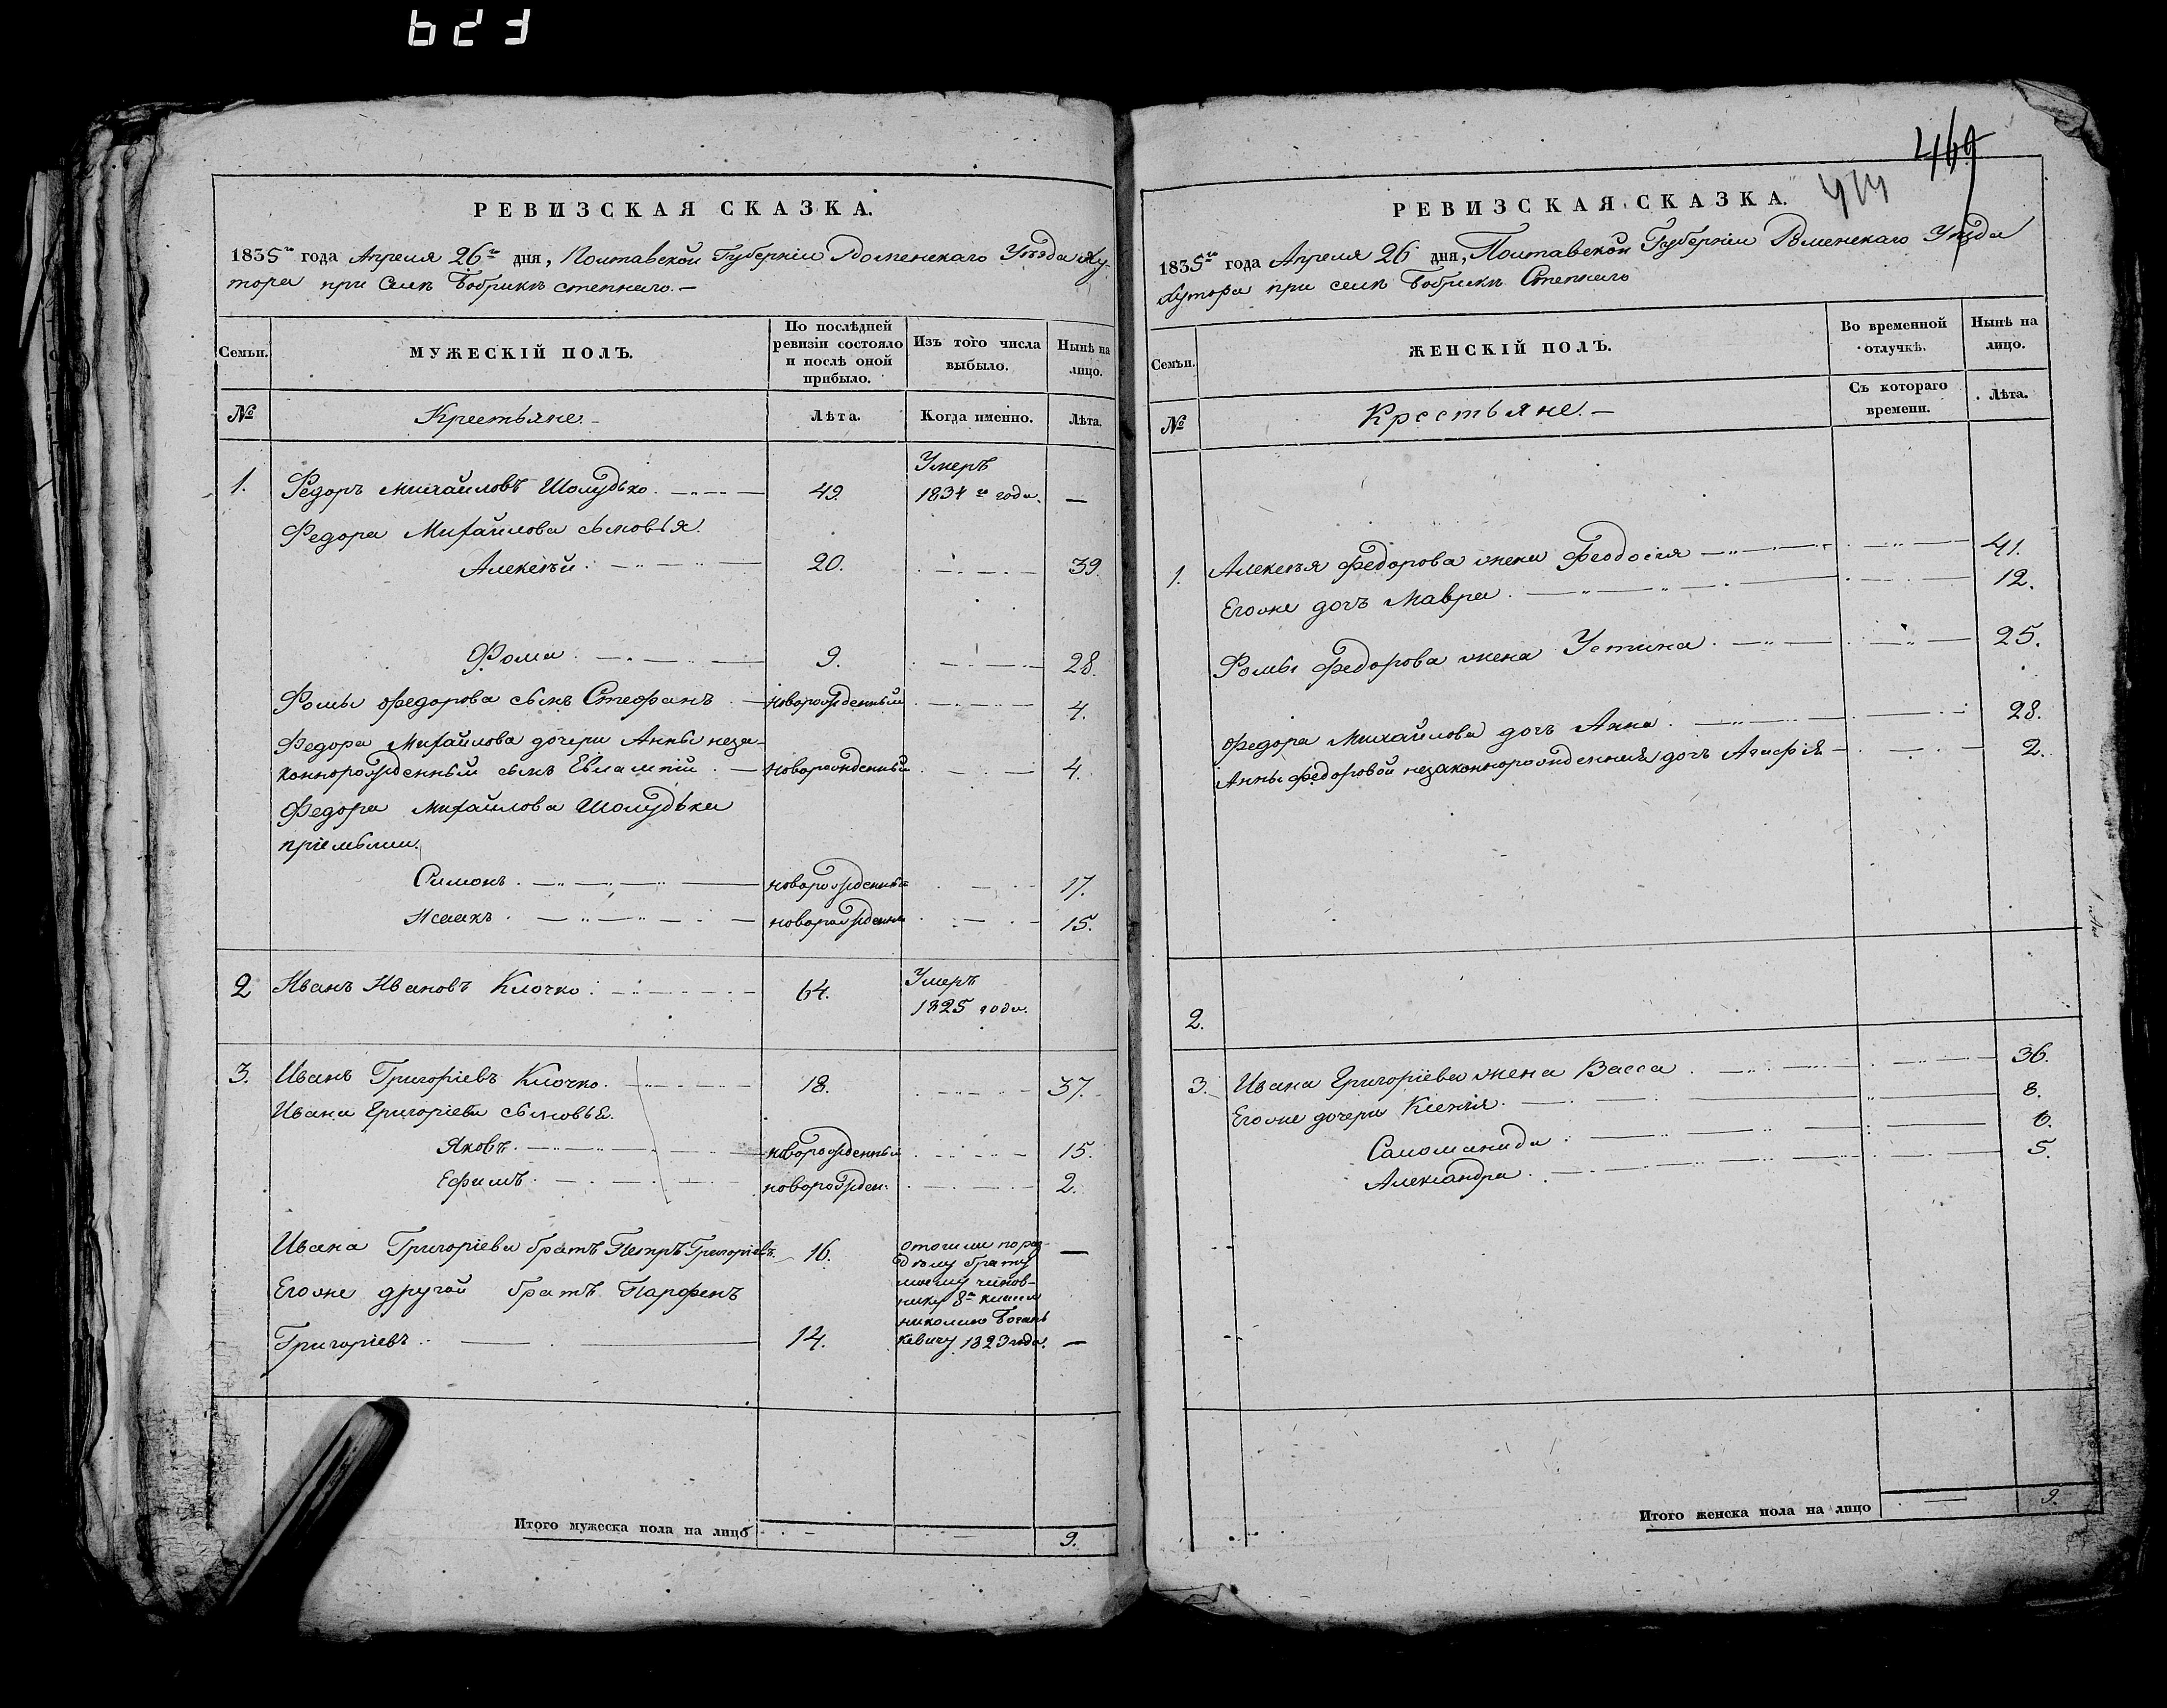 623
РЕВИЗСКАЯ СКАЗКА.
1835го года Апреля 26го дня, Полтавской Губерніи Роменскаго Уѣзда Ху-
тора при Селѣ Бобрикѣ степнаго.—
Семьи.
МУЖЕСКІЙ ПОЛЪ.
По послѣдней ревизіи состояло и послѣ оной прибыло.
Изъ того числа выбыло.
Нынѣ на лицо.
№
Крестьяне.—
Лѣта.
Когда именно.
Лѣта.
1. Федоръ Михайловъ Шолудько. 49. Умеръ 1834го года. —
Федора Михайлова сыновья.
Алексѣй. 20. 39.
Фома. 9. 28.
Фомы Федорова сынъ Стефанъ новорожденный 4.
Федора Михайлова дочери Анны неза-
коннорожденный сынъ Евлампій. новорожденный 4.
Федора Михайлова Шолудька
пріемыши.
Симонъ. новорожденный 17.
Исаакъ. новорожденн 15.
2 Иванъ Ивановъ Клочко. 64. Умеръ
1825 года.
3. Иванъ Григоріевъ Клочко. 18. 37.
Ивана Григоріева сыновья.
Яковъ. новорожденный 15.
Ефимъ. новорожден. 2.
Ивана Григоріева братъ Петръ Григоріевъ. 16. —
Его же другой братъ Парфенъ
Григоріевъ. 14. —
отошли по раз-
дѣлу брату
моему чинов-
нику 8го класса
Николаю
1823 года.
Итого мужеска пола на лицо — — 9.
469
РЕВИЗСКАЯ СКАЗКА.
1835го года Апреля 26 дня, Полтавской Губерніи Роменскаго Уѣзда
Хутора при селѣ Бобрикѣ Степнаго
Семьи.
ЖЕНСКІЙ ПОЛЪ.
Во временной отлучкѣ.
Нынѣ на лицо.
№
Крестьяне.—
Съ котораго времени.
Лѣта.
1. Алексѣя Федорова жена Феодосія 41.
Его же дочь Мавра. 12.
Фомы Федорова жена Устина. 25.
Федора Михайлова дочь Анна. 28.
Анны Федоровой незаконнорожденная дочь Агафія 2.
2.
3. Ивана Григоріева жена Васса. 36.
Его же дочери Ксенія. 8.
Саломанида. 6.
Александра. 5.
Итого женска пола на лицо — 9.